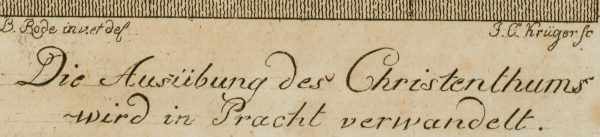 B. Rode inv. et del.
J. C. Krüger sc
Die Ausübung des Christenthums
wird in Pracht verwandelt.